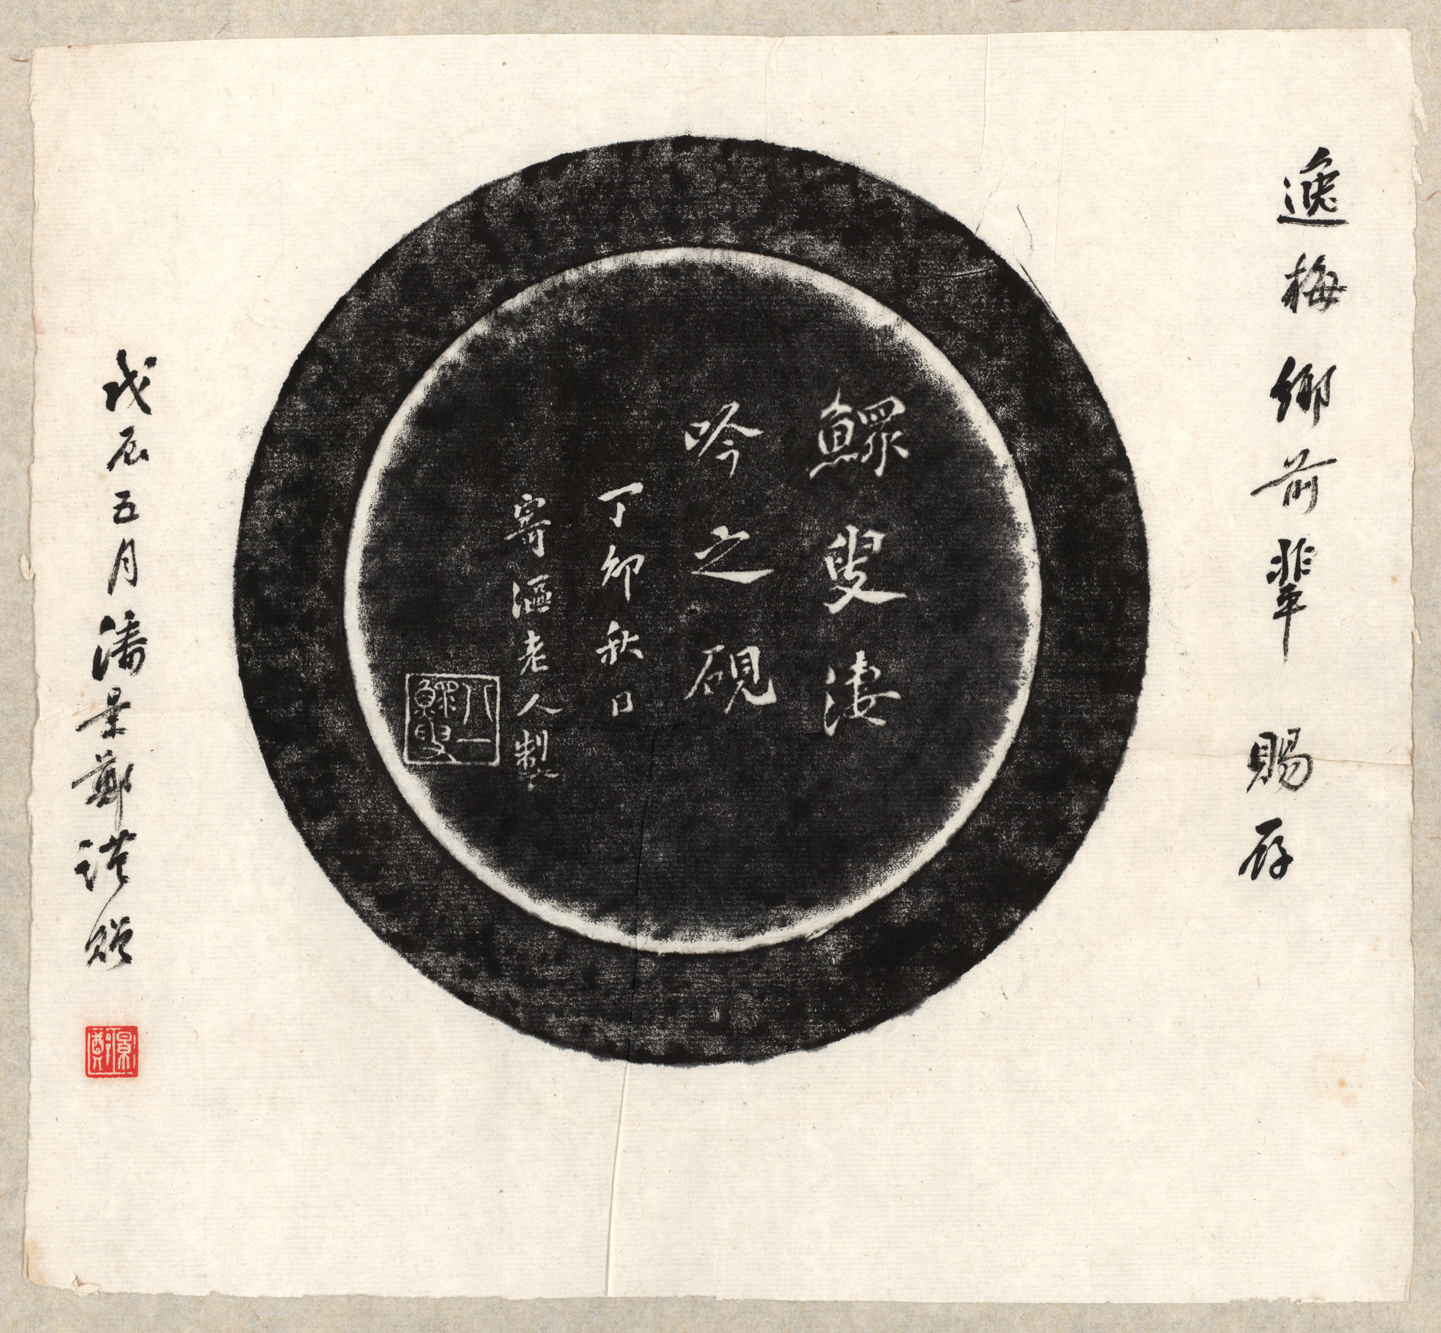 逸梅鄉前輩 賜存
鰥叟淒
吟之硯
丁卯秋日
寄漚老人製
八一鰥叟
戊辰五月潘景鄭謹贈
景鄭